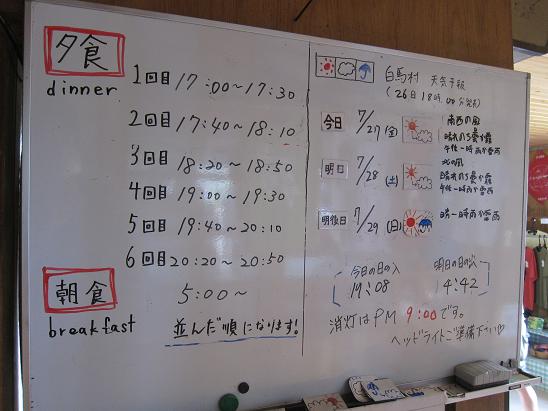 夕食
dinner
1回目 17:00〜17:30
2回目 17:40〜18:10
3回目 18:20〜18:50
4回目 19:00〜19:30
5回目 19:40〜20:10
6回目 20:20〜20:50
朝食
breakfast
5:00〜
並んだ順になります!
白馬村 天気予報
(26日18時00分発表)
今日 7/27(金)
南西の風
晴れのち曇か霧
午後一時雨か雷雨
明日 7/28(土)
北の風
晴れのち曇か霧
午後一時雨か雷雨
明後日 7/29(日)
晴一時雨か雷雨
今日の日の入
19:08
明日の日の出
4:42
消灯はPM 9:00です。
ヘッドライトご準備下さい♡